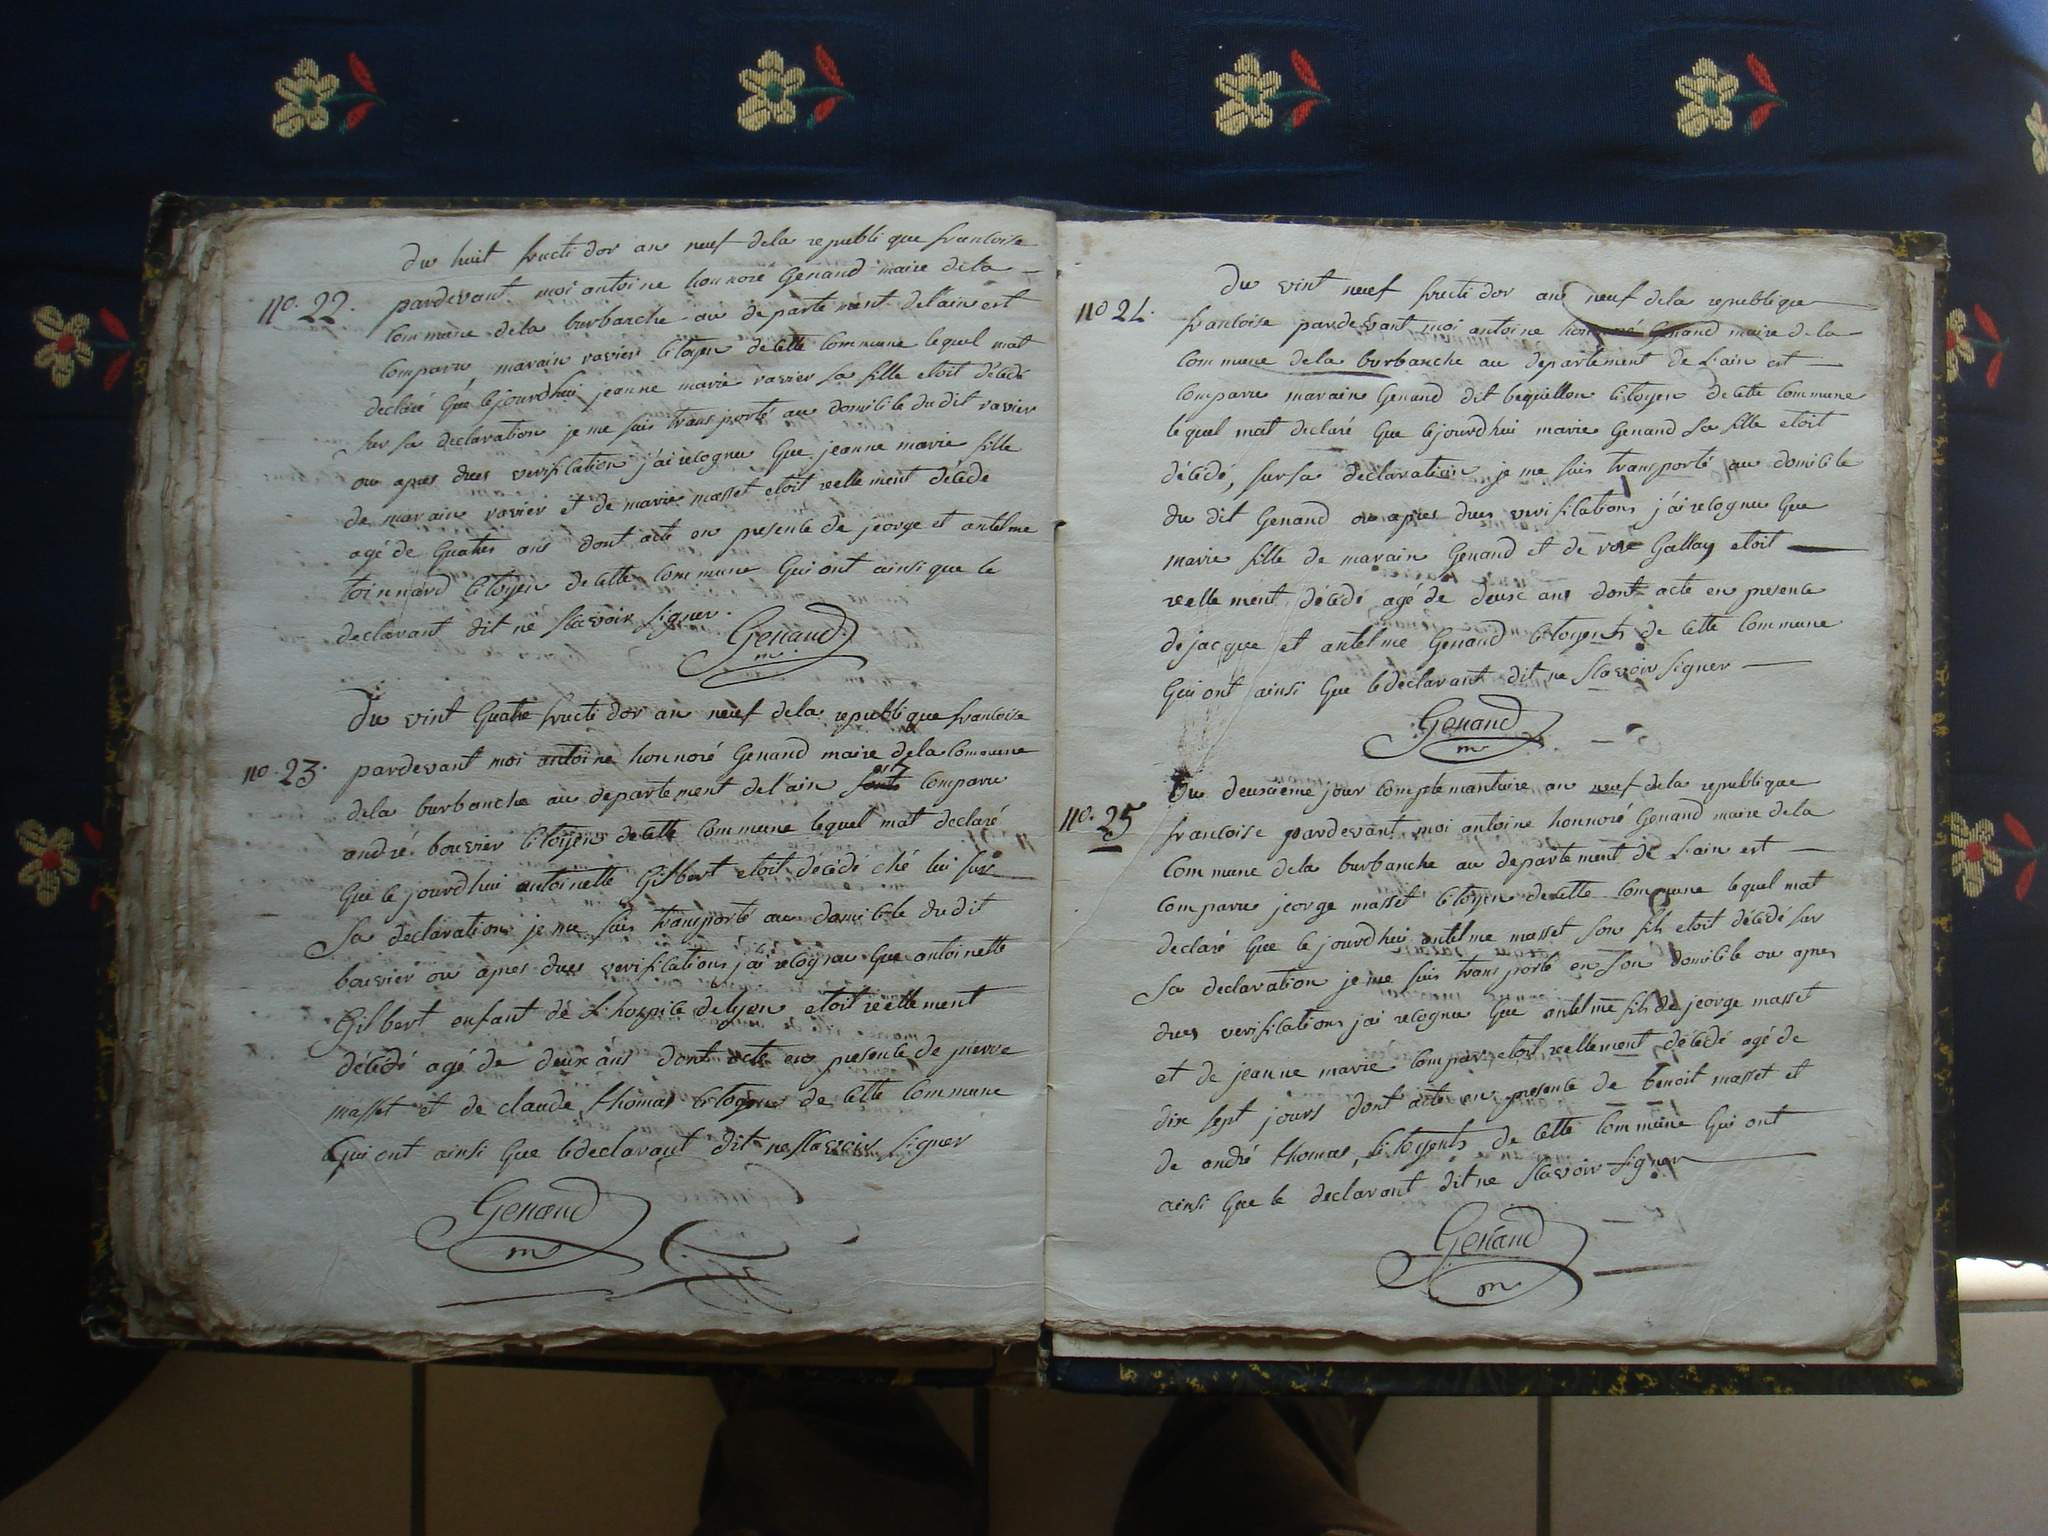 du huit fructi dor an neuf dela republi que francoise
no. 22. pardevant moi antoi ne honnoré Genand maire dela
Commune dela burbanche au departe ment delain est
Comparu marain ravier Citoyen de Cette Commune lequel mat
declaré Que Cejourdhui jeanne marie ravier sa fille etoit décédé
sur sa declaration je me suis transporté au domicile du dit ravier
ou apres dues verification j'ai recognu Que jeanne marie fille
de marain ravier et de marie masset etoit reelle ment décédé
agé de Quatres ans dont acte en presence de jeorge et antelme
toinnard Citoyen de Cette Commune Qui ont ainsi que le
declarant dit ne Scavoir signer.
Genand
m
Du vint Quatre fructi dor an neuf dela republi que francoise
no. 23. pardevant moi antoi ne honnoré Genand maire dela Commune
dela burbanche au departement de l'ain est Comparu
andré bouvier Citoyen de Cette Commune lequel mat declaré
Que Ce jourdhui antoinette Gilbert etoit décédé ché lui sur
Sa declaration je me suis transporté au domicile du dit
bouvier ou apres dues verifications j'ai recognu Que antoinette
Gilbert enfant dé L'hospice de lyon etoit reellement
décédé agé de deux ans dont acte en presence de pierre
masset et de claude thomas Citoyens de Cette Commune
Qui ont ainsi Que le declarant dit ne Scavoir signer
Genand
m
Du vint neuf fructi dor an neuf dela republique
no 24. francoise pardevant moi antoine honnoré Genand maire de la
Commune dela burbanche au departement de L'ain est
Comparu marain Genand dit bequillon Citoyen de Cette Commune
le quel mat declaré Que Cejourd'hui marie Genand Sa fille etoit
décédé, sur sa declaration je me suis transporté au domicile
du dit Genand ou apres dues verifications j'ai recognu Que
marie fille de marain Genand et de rose Gallay etoit
reelle ment décédé agé de deux ans dont acte en presence
de jacque et antelme Genand Citoyents de Cette Commune
Qui ont ainsi Que le declarant dit ne Scavoir signer
Genand
m
Du deuxieme jour Complemantaire an neuf dela republique
no. 25 francoise pardevant moi antoine honnoré Genand maire de la
Commune dela burbanche au departement de L'ain est
Comparu jeorge masset Citoyen de Cette Commune lequel mat
declaré Que Ce jourdhui antelme masset Son fils etoit décédé sur
Sa declaration je me suis transporté en Son domicile ou apres
dues verifications j'ai recognu Que antelme fils de jeorge masset
et de jeanne marie etoit reellement décédé agé de
dix sept jours dont acte en presence de benoit masset et
de andré thomas, Citoyents de Cette Commune Qui ont
ainsi Que le declarant dit ne Scavoir signer
Genand
m